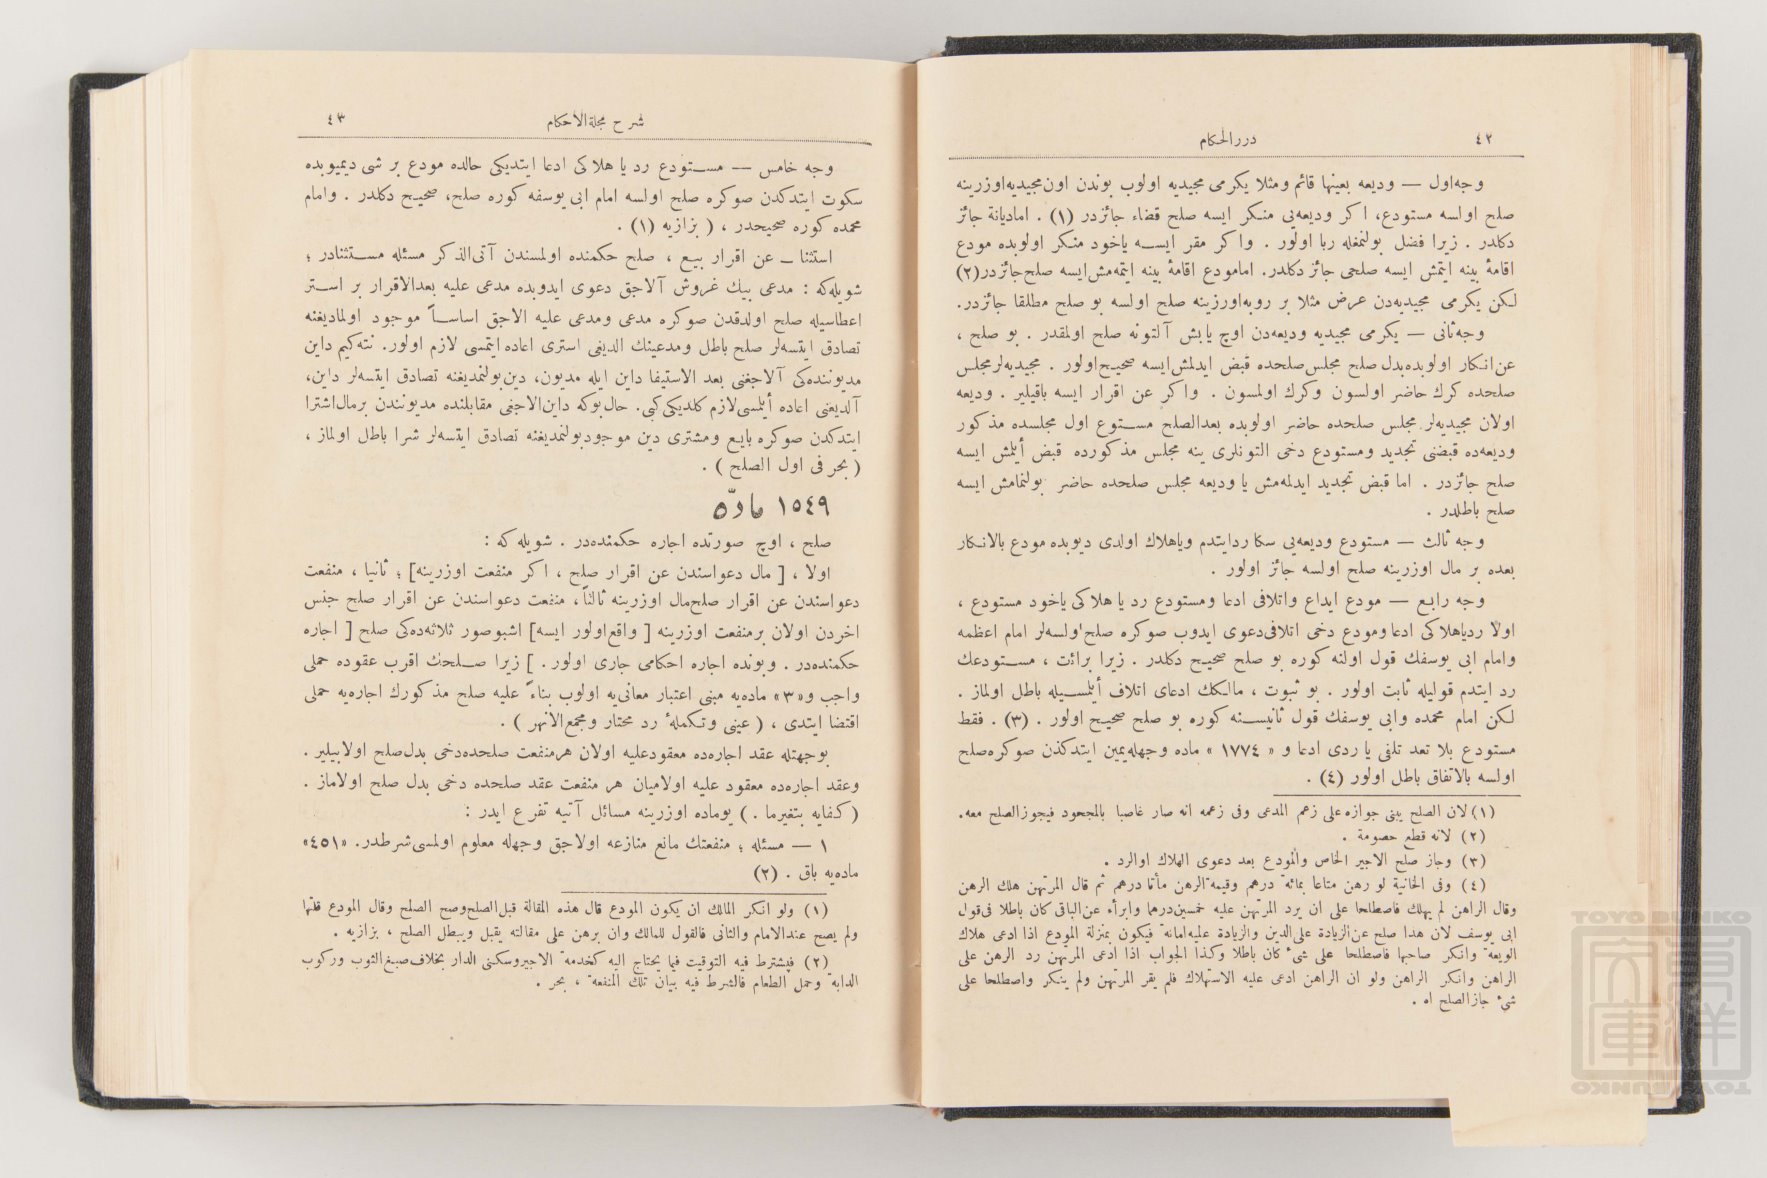 ٤٢
دررالحكام
وجه‌اول — وديعه بعينها قائم ومثلا يكرمى مجيديه اولوب بوندن اون‌مجيديه‌اوزرينه
صلح اولسه مستودع، اكر وديعه‌يى منكر ايسه صلح قضاء جائزدر (١) . اماديانة جائز
دكلدر . زيرا فضل بولنمغله ربا اولور . واكر مقر ايسه ياخود منكر اولوبده مودع
اقامهٔ بينه ايتمش ايسه صلحى جائز دكلدر. امامودع اقامهٔ بينه ايتمه‌مش‌ايسه صلح‌جائزدر(٢)
لكن يكرمى مجيديه‌دن عرض مثلا بر روبه‌اورزينه صلح اولسه بو صلح مطلقا جائزدر.
وجه‌ثانى — يكرمى مجيديه وديعه‌دن اوچ يابش آلتونه صلح اولمقدر . بو صلح ،
عن‌انكار اولوبده‌بدل صلح مجلس‌صلحده قبض ايدلمش‌ايسه صحيح‌اولور . مجيديه‌لرمجلس
صلحده كرك حاضر اولسون وكرك اولمسون . واكر عن اقرار ايسه باقيلير . وديعه
اولان مجيديه‌لر مجلس صلحده حاضر اولوبده بعدالصلح مستوع اول مجلسده مذكور
وديعه‌ده قبضنى تجديد ومستودع دخى التونلرى ينه مجلس مذكورده قبض أيلمش ايسه
صلح جائزدر . اما قبض تجديد ايدلمه‌مش يا وديعه مجلس صلحده حاضر بولنمامش ايسه
صلح باطلدر .
وجه ثالث — مستودع وديعه‌يى سكا ردايتدم وياهلاك اولدى ديوبده مودع بالانكار
بعده بر مال اوزرينه صلح اولسه جائز اولور .
وجه رابع — مودع ايداع واتلافى ادعا ومستودع رد يا هلاكى ياخود مستودع ،
اولا ردياهلاكى ادعاومودع دخى اتلافى‌دعوى ايدوب صوكره صلح اولسه‌لر امام اعظمه
وامام ابى يوسفك قول اولنه كوره بو صلح صحيح دكلدر . زيرا برائت ، مستودعك
رد ايتدم قوليله ثابت اولور . بو ثبوت ، مالكك ادعاى اتلاف أيلمسيله باطل اولماز .
لكن امام محمده وابى يوسفك قول ثانيسنه كوره بو صلح صحيح اولور . (٣) . فقط
مستودع بلا تعد تلفى يا ردى ادعا و « ١٧٧٤ » ماده وجهله‌يمين ايتدكدن صوكره‌صلح
اولسه بالاتفاق باطل اولور (٤) .
(١)لان الصلح يبنى جوازه على زعم المدعى وفى زعمه انه صار غاصبا بالمجحود فيجوزالصلح معه.
(٢) لانه قطع خصومة .
(٣) وجاز صلح الاجير الخاص والمودع بعد دعوى الهلاك اوالرد .
(٤) وفى الخانية لو رهن متاعا بمائة درهم وقيمةالرهن مأتا درهم ثم قال المرتهن هلك الرهن
وقال الراهن لم يهلك فاصطلحا على ان يرد المرتهن عليه خمسين‌درهما وابرأه عن‌الباقى كان باطلا فى‌قول
ابى يوسف لان هذا صلح عن‌الزيادة على‌الدين والزيادة عليه‌امانة فيكون بمنزلة المودع اذا ادعى هلاك
الويعة وانكر صاحبها فاصطلحا على شىء كان باطلا وكذا الجواب اذا ادعى المرتهن رد الرهن على
الراهن وانكر الراهن ولو ان الراهن ادعى عليه الاستهلاك فلم يقر المرتهن ولم ينكر واصطلحا على
شىء جازالصلح اه .
شرح مجلةالاحكام
٤٣
وجه خامس — مستودع رد يا هلاكى ادعا ايتديكى حالده مودع بر شى ديميوبده
سكوت ايتدكدن صوكره صلح اولسه امام ابى يوسفه كوره صلح، صحيح دكلدر . وامام
محمده كوره صحيحدر ، ( بزازيه (١) .
استثنا — عن اقرار بيع ، صلح حكمنده اولمسندن آتى‌الذكر مسئله مستثنادر ؛
شويله‌كه : مدعى بيك غروش آلاجق دعوى ايدوبده مدعى عليه بعدالاقرار بر استر
اعطاسيله صلح اولدقدن صوكره مدعى ومدعى عليه الاجق اساساً موجود اولماديغنه
تصادق ايتسه‌لر صلح باطل ومدعينك الديغى استرى اعاده ايتمسى لازم اولور. نته‌كيم داين
مديوننده‌كى آلاجغنى بعد الاستيفا داين ايله مديون، دين‌بولنمديغنه تصادق ايتسه‌لر داين،
آلديغنى اعاده أيلمسى‌لازم كلديكى‌كبى. حال‌بوكه داين‌الاجغى مقابلنده مديونندن برمال‌اشترا
ايتدكدن صوكره بايع ومشترى دين موجودبولنمديغنه تصادق ايتسه‌لر شرا باطل اولماز ،
( بحر فى اول الصلح ) .
١٥٤٩ مادّه
صلح ، اوچ صورتده اجاره حكمنده‌در . شويله كه :
اولا ، [ مال دعواسندن عن اقرار صلح ، اكر منفعت اوزرينه] ؛ ثانيا ، منفعت
دعواسندن عن اقرار صلح‌مال اوزرينه ثالثاً، منفعت دعواسندن عن اقرار صلح جنس
اخردن اولان برمنفعت اوزرينه [ واقع‌اولور ايسه] اشبوصور ثلاثه‌ده‌كى صلح [ اجاره
حكمنده‌در . وبونده اجاره احكامى جارى اولور . ] زيرا صلحك اقرب عقوده حملى
واجب و«٣» ماده‌يه مبنى اعتبار معانى‌يه اولوب بناءً عليه صلح مذكورك اجاره‌يه حملى
اقتضا ايتدى ، ( عينى وتكملهٔ رد محتار ومجمع‌الانهر ) .
بوجهتله عقد اجاره‌ده معقودعليه اولان هرمنفعت صلحده‌دخى بدل‌صلح اولابيلير .
وعقد اجاره‌ده معقود عليه اولاميان هر منفعت عقد صلحده دخى بدل صلح اولاماز .
( كفايه بتغيرما . ) بوماده اوزرينه مسائل آتيه تفرع ايدر :
١ — مسئله ؛ منفعتك مانع منازعه اولاجق وجهله معلوم اولمسى‌شرطدر. «٤٥١»
ماده‌يه باق . (٢)
(١) ولو انكر المالك ان يكون المودع قال هذه المقالة قبل‌الصلح‌وصح الصلح وقال المودع قلتها
ولم يصح عندالامام والثانى فالقول للمالك وان برهن على مقالته يقبل ويبطل الصلح ، بزازيه .
(٢) فيشترط فيه التوقيت فيما يحتاج اليه كخدمة الاجيروسكنى الدار بخلاف‌صبغ‌الثوب وركوب
الدابة وحمل الطعام فالشرط فيه بيان تلك المنفعة ، بحر .
TOYO BUNKO
東洋文庫
TOYO BUNKO